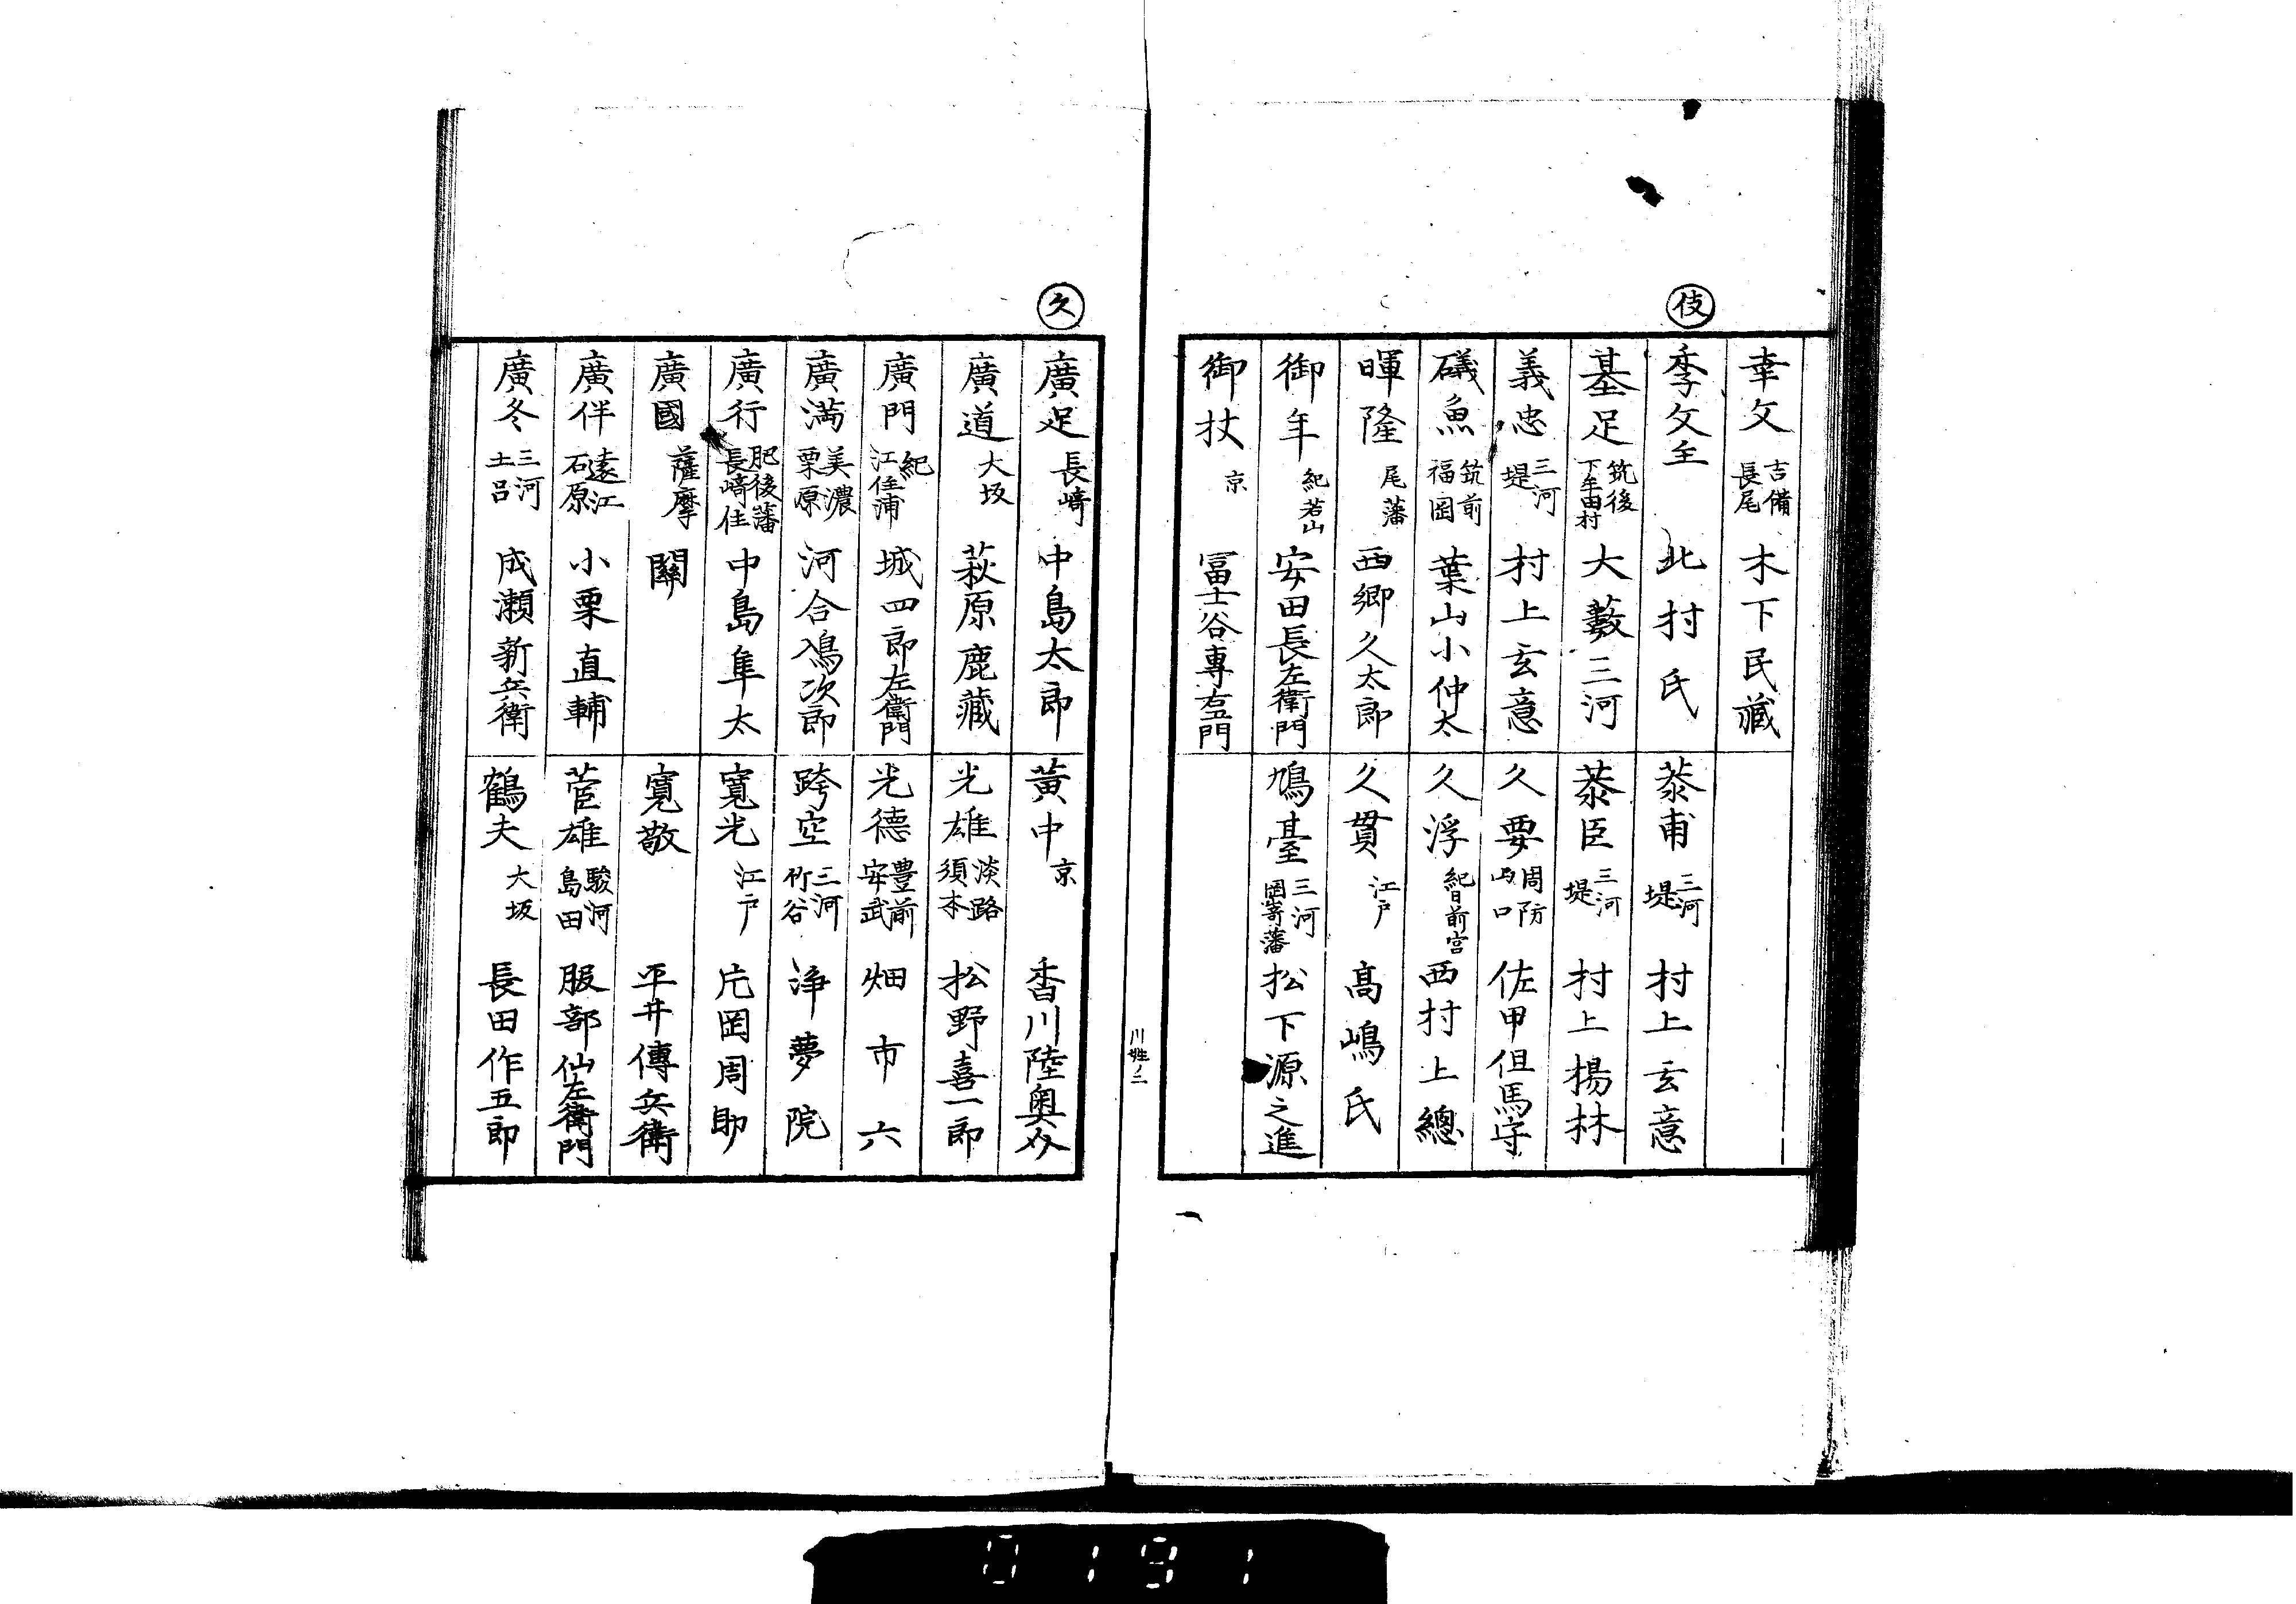 幸文 吉備長尾 木下民藏
伎
季文至 北村氏
基足 筑後下牟田村 大藪三河
義忠 三河堤 村上玄意
礒魚 筑前福岡 葉山小仲太
暉隆 尾藩 西郷久太郎
御年 紀若山 安田長左衛門
御杖 京 冨士谷專右衛門
恭甫 三河堤 村上玄意
恭臣 三河堤 村上楊林
久要 周防山口 佐甲但馬守
久浮 紀日前宮 西村上總
久貫 江戸 髙嶋氏
鳩臺 三河岡嵜藩 松下源之進
川姓ノ二
久
廣足 長崎 中島太郎
廣道 大坂 萩原鹿藏
廣門 紀江住浦 城四郎左衛門
廣満 美濃栗原 河合入鳰次郎
廣行 肥後藩長崎住 中島隼太
廣國 薩摩 關
廣伴 遠江石原 小栗直輔
廣冬 三河土呂 成瀬新兵衛
黃中 京 香川陸奥介
光雄 淡路須本 松野喜一郎
光德 豊前安武 畑市六
跨空 三河竹谷 浄夢院
寛光 江戸 片岡周助
寛敬 平井傳兵衛
菅雄 駿河島田 服部仙左衛門
鶴夫 大坂 長田作五郎
0191